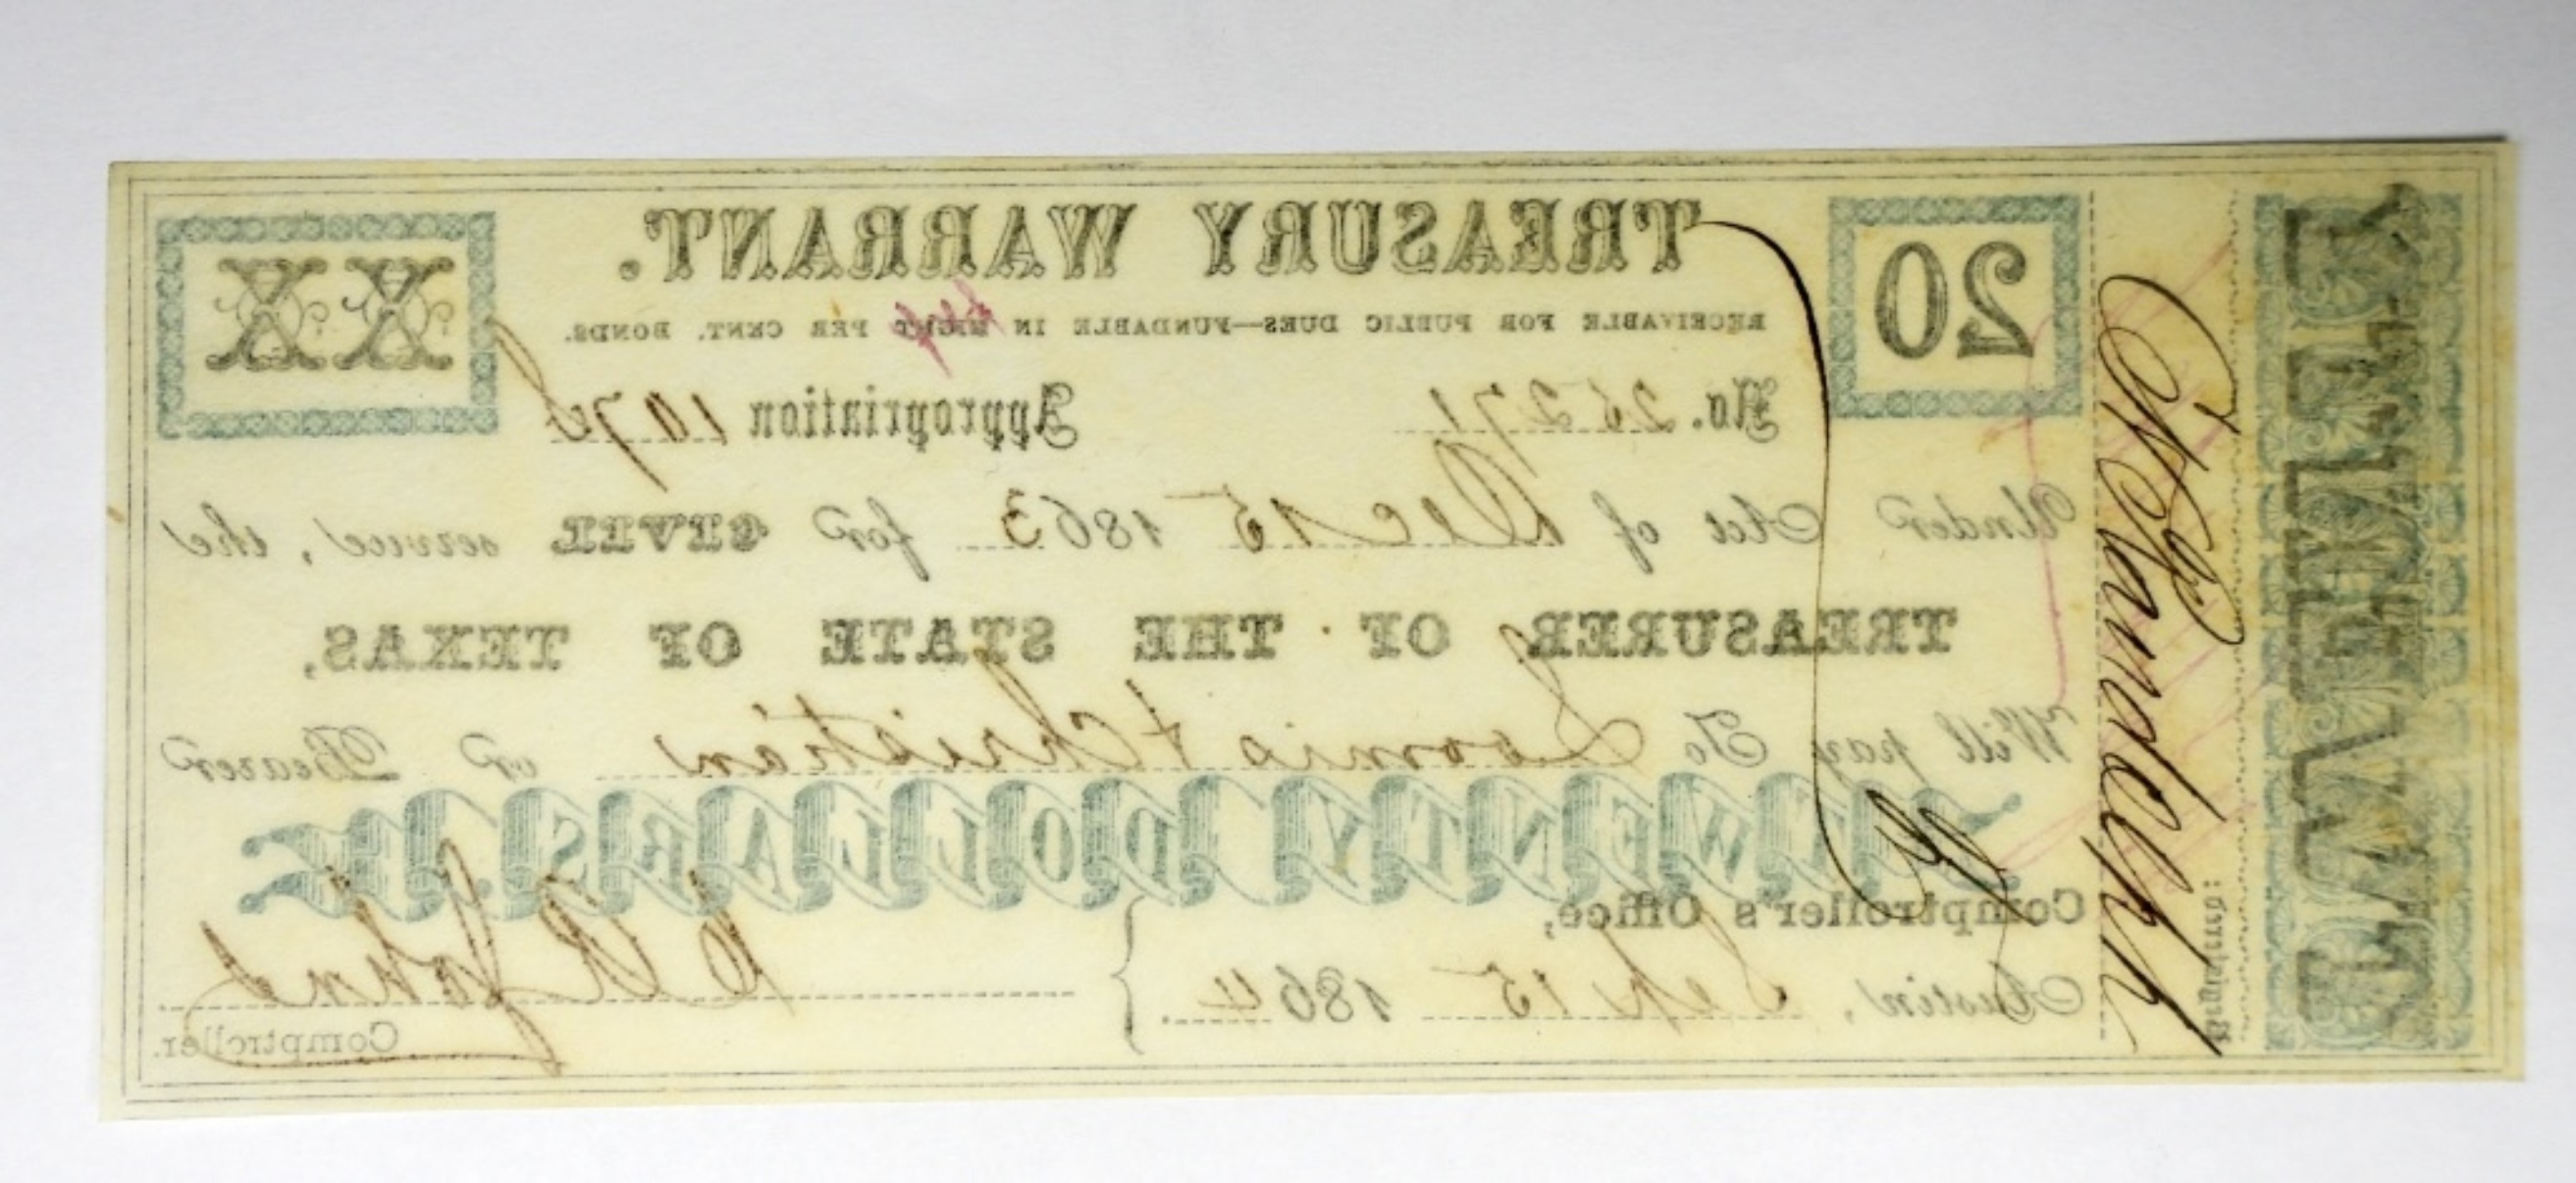 TREASURY WARRANT.
20
XX
RECEIVABLE FOR PUBLIC DUES—FUNDABLE IN EIGHT PER CENT. BONDS.
No. 26271 Appropriation 1078
Under Act of Dec 15 1863 for CIVIL service, the
TREASURER OF THE STATE OF TEXAS,
Will pay To Loomis & Christian or Bearer
TWENTY DOLLARS.
Comptroller's Office,
Austin, Sep 15 1864.
C R Johns
Comptroller.
Registered:
C H Randolph
TWENTY